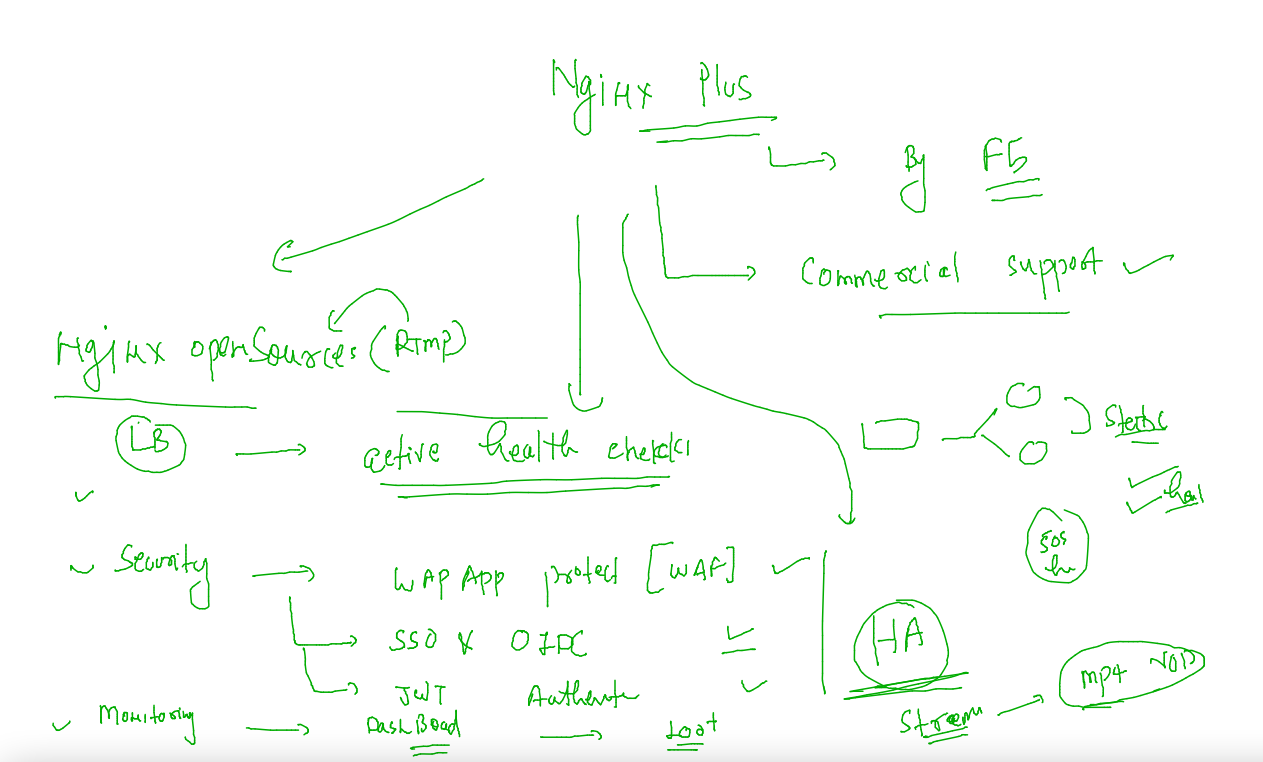 Nginx Plus
By F5
Commercial support
Nginx openSources (RTMP)
LB
active health checks
Static
Security
WAP APP protect [WAF]
SSO & OIDC
HA
JWT Authente
mp4 VOD
Monitoring
DashBoad
Stream